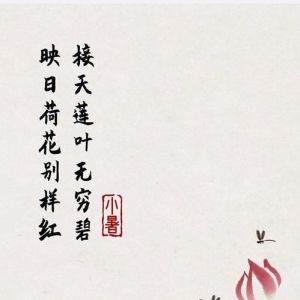 接天莲叶无穷碧
映日荷花别样红
小暑